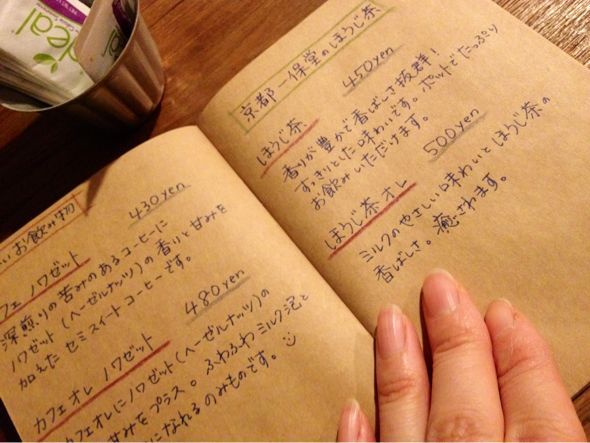 deal
い お飲み物
フェ ノワゼット
430yen
深煎りの苦みのあるコーヒーに
ノワゼット(ヘーゼルナッツ)の香りと甘みを
加えた セミスイートコーヒーです。
カフェオレ ノワゼット
480yen
カフェオレにノワゼット(ヘーゼルナッツ)の
甘みをプラス。ふわふわミルク泡と
になれるのみものです。
京都一保堂のほうじ茶
ほうじ茶
450yen
香りが豊かで香ばしさ抜群!
すっきりとした味わいです。ポットでたっぷり
お飲みいただけます。
ほうじ茶オレ
500yen
ミルクのやさしい味わいとほうじ茶の
香ばしさ。癒されます。